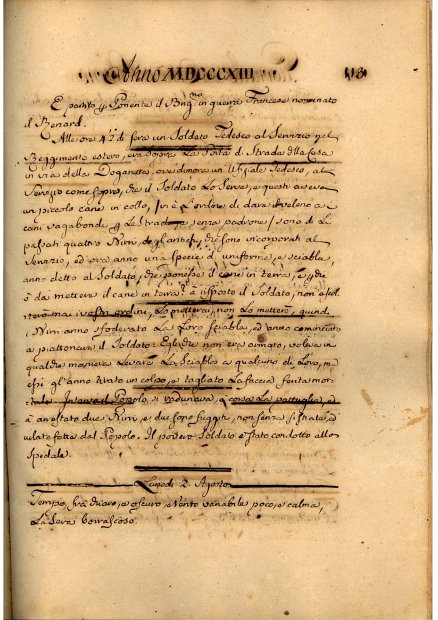 Anno MDCCCXIII 113
E partito p. Ponente il Brig.no in guerra Francese nominato
il Renard.
Alle ore 4½ di sera un Soldato Tedesco al Servizio nel
Reggimento estero, era sopra la Porta di Strada della Casa
in via della Doganetta, ove dimora un Ufiziale Tedesco, al
Servizio come sopra, che il Soldato Lo Serve, e questi aveva
un piccolo cane in collo, Vi è L'ordine di dare il veleno a i
cani vagabondi p. Le Strade e senza padrone; sono di La
passati quattro Birri, che son vicorporati al
Servizio, ed ora anno una specie d'uniforme, e sciabla,
anno detto al Soldato, che ponesse il cane in terra, e che
à da mettere il cane in terra? à risposto il Soldato, non
ma i vostri ordini, Lo metterai, non Lo metterò, quindi
i Birri anno sfoderato La Loro sciabla, ed anno cominciato
a piattonare il Soldato. Egli che non era armato, voleva in
qualche maniera Levare La Sciabla a qualcuno di Loro, ma
essi gl'anno tirato un colpo, e tagliato La faccia, ferita mor-
tale. Intanto il Popolo si radunava, è corsa La pattuglia, ed
à arrestato due Birri, e due sono fuggiti, non senza fistiate, ed
urlate fatte dal Popolo. Il povero Soldato è stato condotto allo
Spedale.
Lunedì 2. Agosto
Tempo frà chiaro, e oscuro, e Vento variabile poco, e calma,
La sera borrascoso.